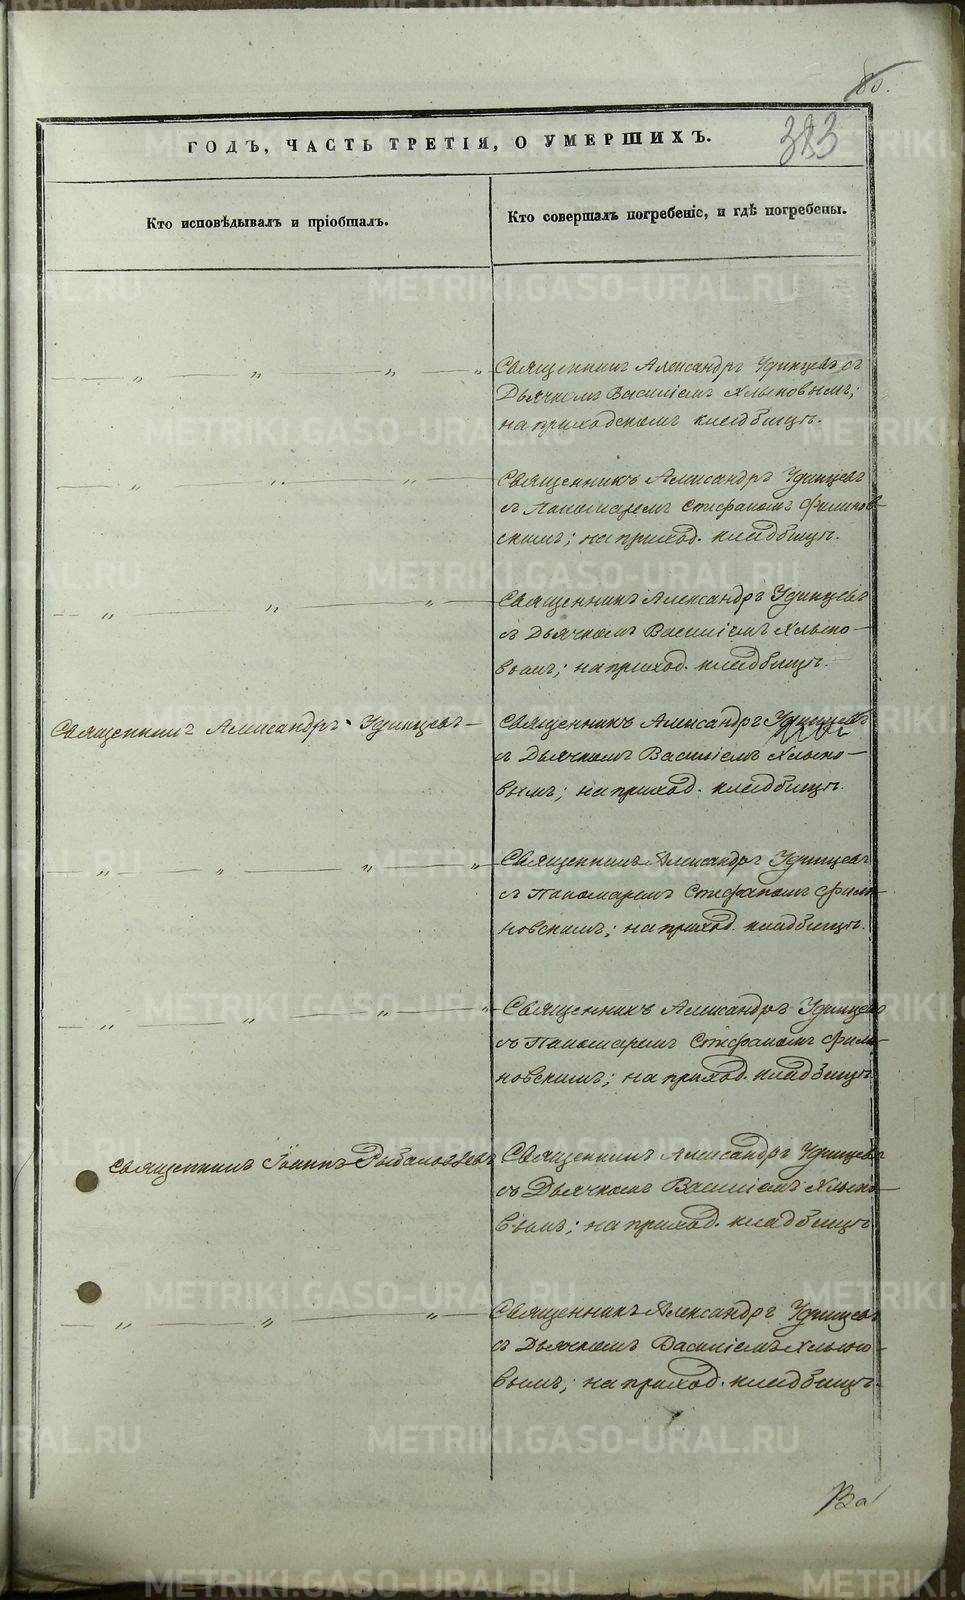 85.
383
ГОДЪ, ЧАСТЬ ТРЕТІЯ, О УМЕРШИХЪ.
Кто исповѣдывалъ и пріобщалъ.
Кто совершалъ погребеніе, и гдѣ погребены.
— „ — „ — „ — „
Священникъ Александръ Удинцевъ съ
Дьячкомъ Василіемъ Хлыновымъ;
на приходскомъ кладбищѣ.
— „ — „ — „ —
Священникъ Александръ Удинцевъ
съ Пономаремъ Стефаномъ Филинов-
скимъ; на приход. кладбищѣ.
— „ — „ — „ —
Священникъ Александръ Удинцевъ
съ Дьячкомъ Василіемъ Хлыно-
вымъ; на приход. кладбищѣ.
Священникъ Александръ Удинцевъ —
Священникъ Александръ Удинцевъ
съ Дьячкомъ Василіемъ Хлыно-
вымъ; на приход. кладбищѣ.
— „ — „ — „ — „
Священникъ Александръ Удинцевъ
съ Пономаремъ Стефаномъ Фили-
новскимъ; на приход. кладбищѣ.
— „ — „ — „ — „
Священникъ Александръ Удинцевъ
съ Пономаремъ Стефаномъ Фили-
новскимъ; на приход. кладбищѣ.
Священникъ Іоаннъ
Священникъ Александръ Удинцевъ
съ Дьячкомъ Василіемъ Хлыно-
вымъ; на приход. кладбищѣ.
— „ — „ — „ —
Священникъ Александръ Удинцевъ
съ Дьячкомъ Василіемъ Хлыно-
вымъ; на приход. кладбищѣ.
METRIKI.GASO-URAL.RU